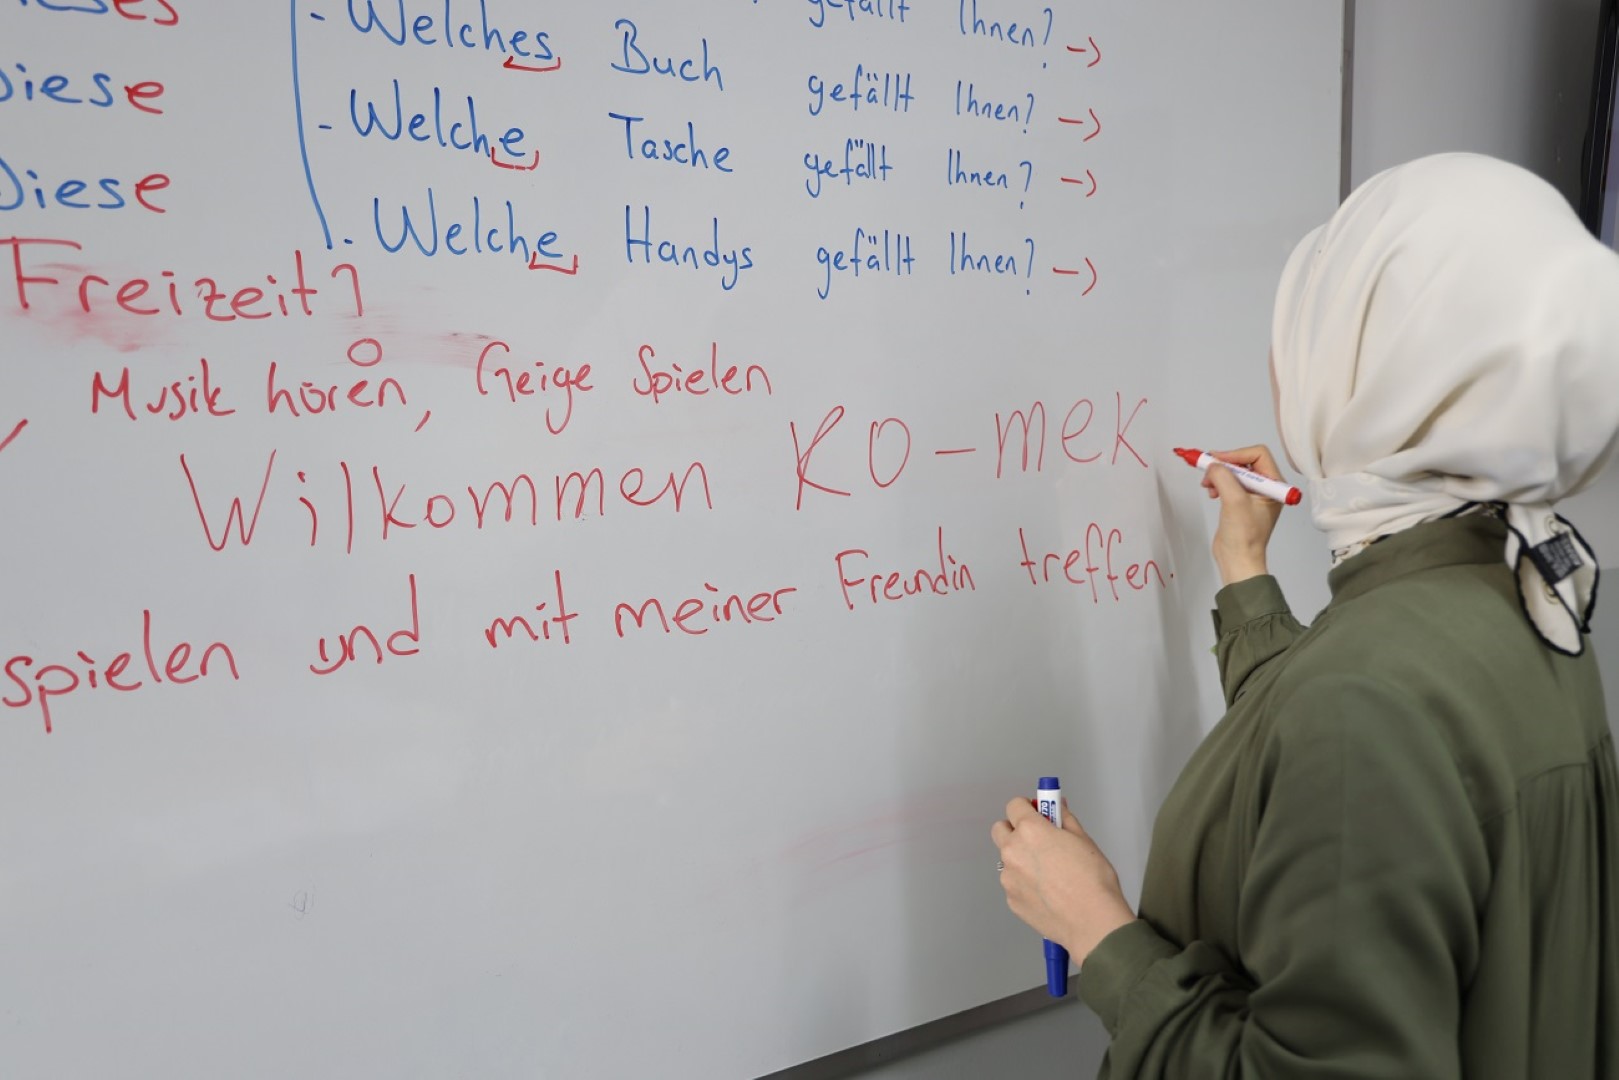 es
- Welches Buch gefällt Ihnen? ->
Diese - Welche Tasche gefällt Ihnen? ->
Diese - Welche Handys gefällt Ihnen? ->
Freizeit?
Musik hören, Geige Spielen
Wilkommen KO-mek
spielen und mit meiner Freundin treffen.